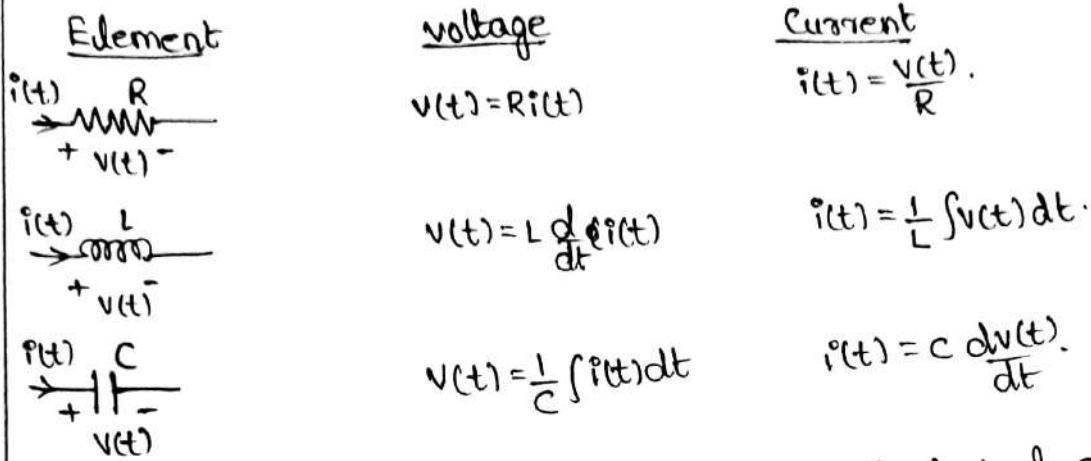 Element voltage Current
i(t) R v(t) = Ri(t) i(t) = v(t)/R .
+ v(t) -
i(t) L v(t) = L d/dt i(t) i(t) = 1/L ∫v(t) dt .
+ v(t) -
i(t) C v(t) = 1/C ∫i(t)dt i(t) = C dv(t)/dt .
+ -
v(t)